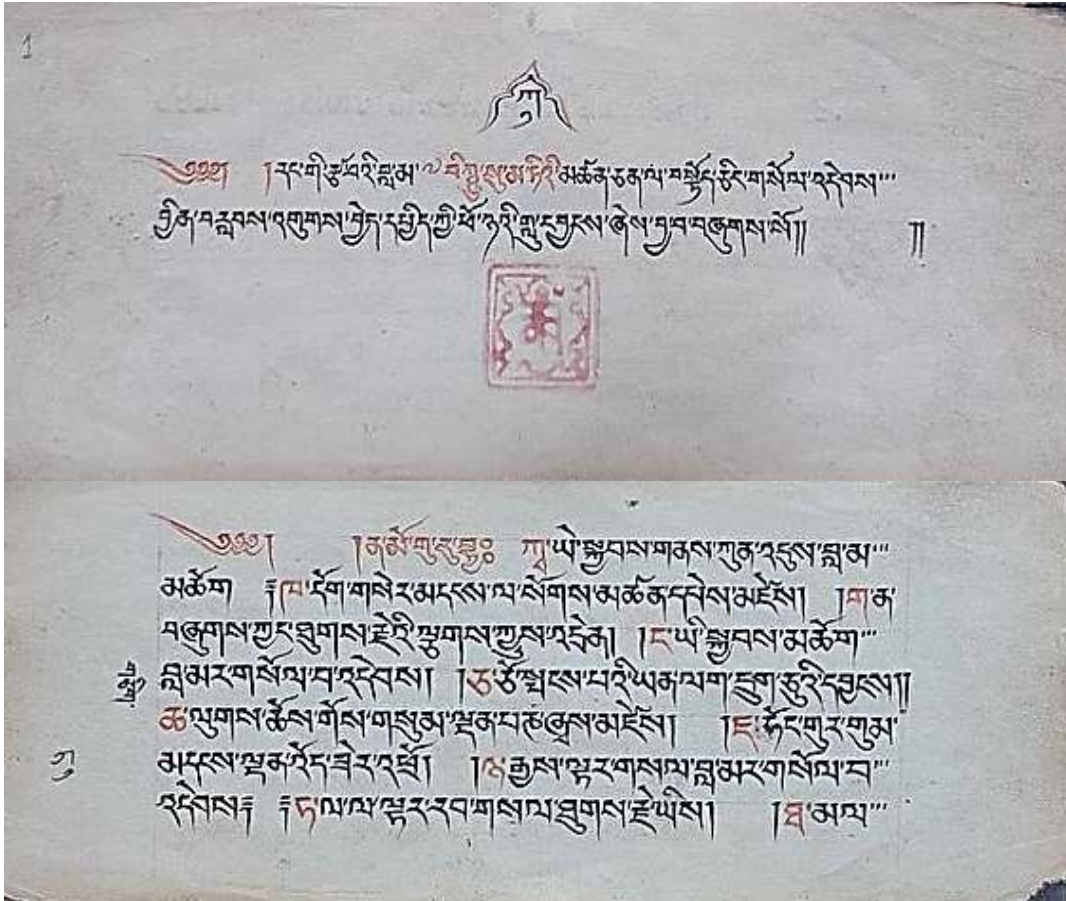 1
ཀུ
༄༅༅། །རང་གི་རྩ་བའི་བླ་མ་ མཚན་ཅན་ལ་བསྟོད་ཅིང་གསོལ་འདེབས་
བྱིན་བརླབས་འགུགས་བྱེད་དཔྱིད་ཀྱི་ཕོ་ཉའི་གླུ་དབྱངས་ཞེས་བྱ་བ་བཞུགས་སོ།། །།
༄༅༅། །ན་མོ་གུ་རུ་བྷྱཿ ཀྭ་ཡེ་སྐྱབས་གནས་ཀུན་འདུས་བླ་མ་
མཚོག །ཁ་དོག་གསེར་མདངས་ལ་སོགས་མཚན་དཔེས་མཛེས། །ག་ན་
བཞུགས་ཀྱང་ཐུགས་རྗེའི་ལྕགས་ཀྱུས་འདྲེན། །ང་ཡི་སྐྱབས་མཆོག་
བླ་མར་གསོལ་བ་འདེབས། །ཅ་ཅོ་སྤངས་པའི་ཡན་ལག་དྲུག་ཅུའི་དབྱངས།།
ཆ་ལུགས་ཆོས་གོས་གསུམ་ལྡན་པཎ་ཞྭས་མཛེས། །ཇ་ཧོང་གུར་གུམ་
མདངས་ལྡན་འོད་ཟེར་འཕྲོ། །ཉ་རྒྱས་ལྟར་གསལ་བླ་མར་གསོལ་བ་
འདེབས། །ཏ་ལ་ལ་ལྟར་རབ་གསལ་ཐུགས་རྗེ་ཡིས། །ཐ་མལ་
ཀུ